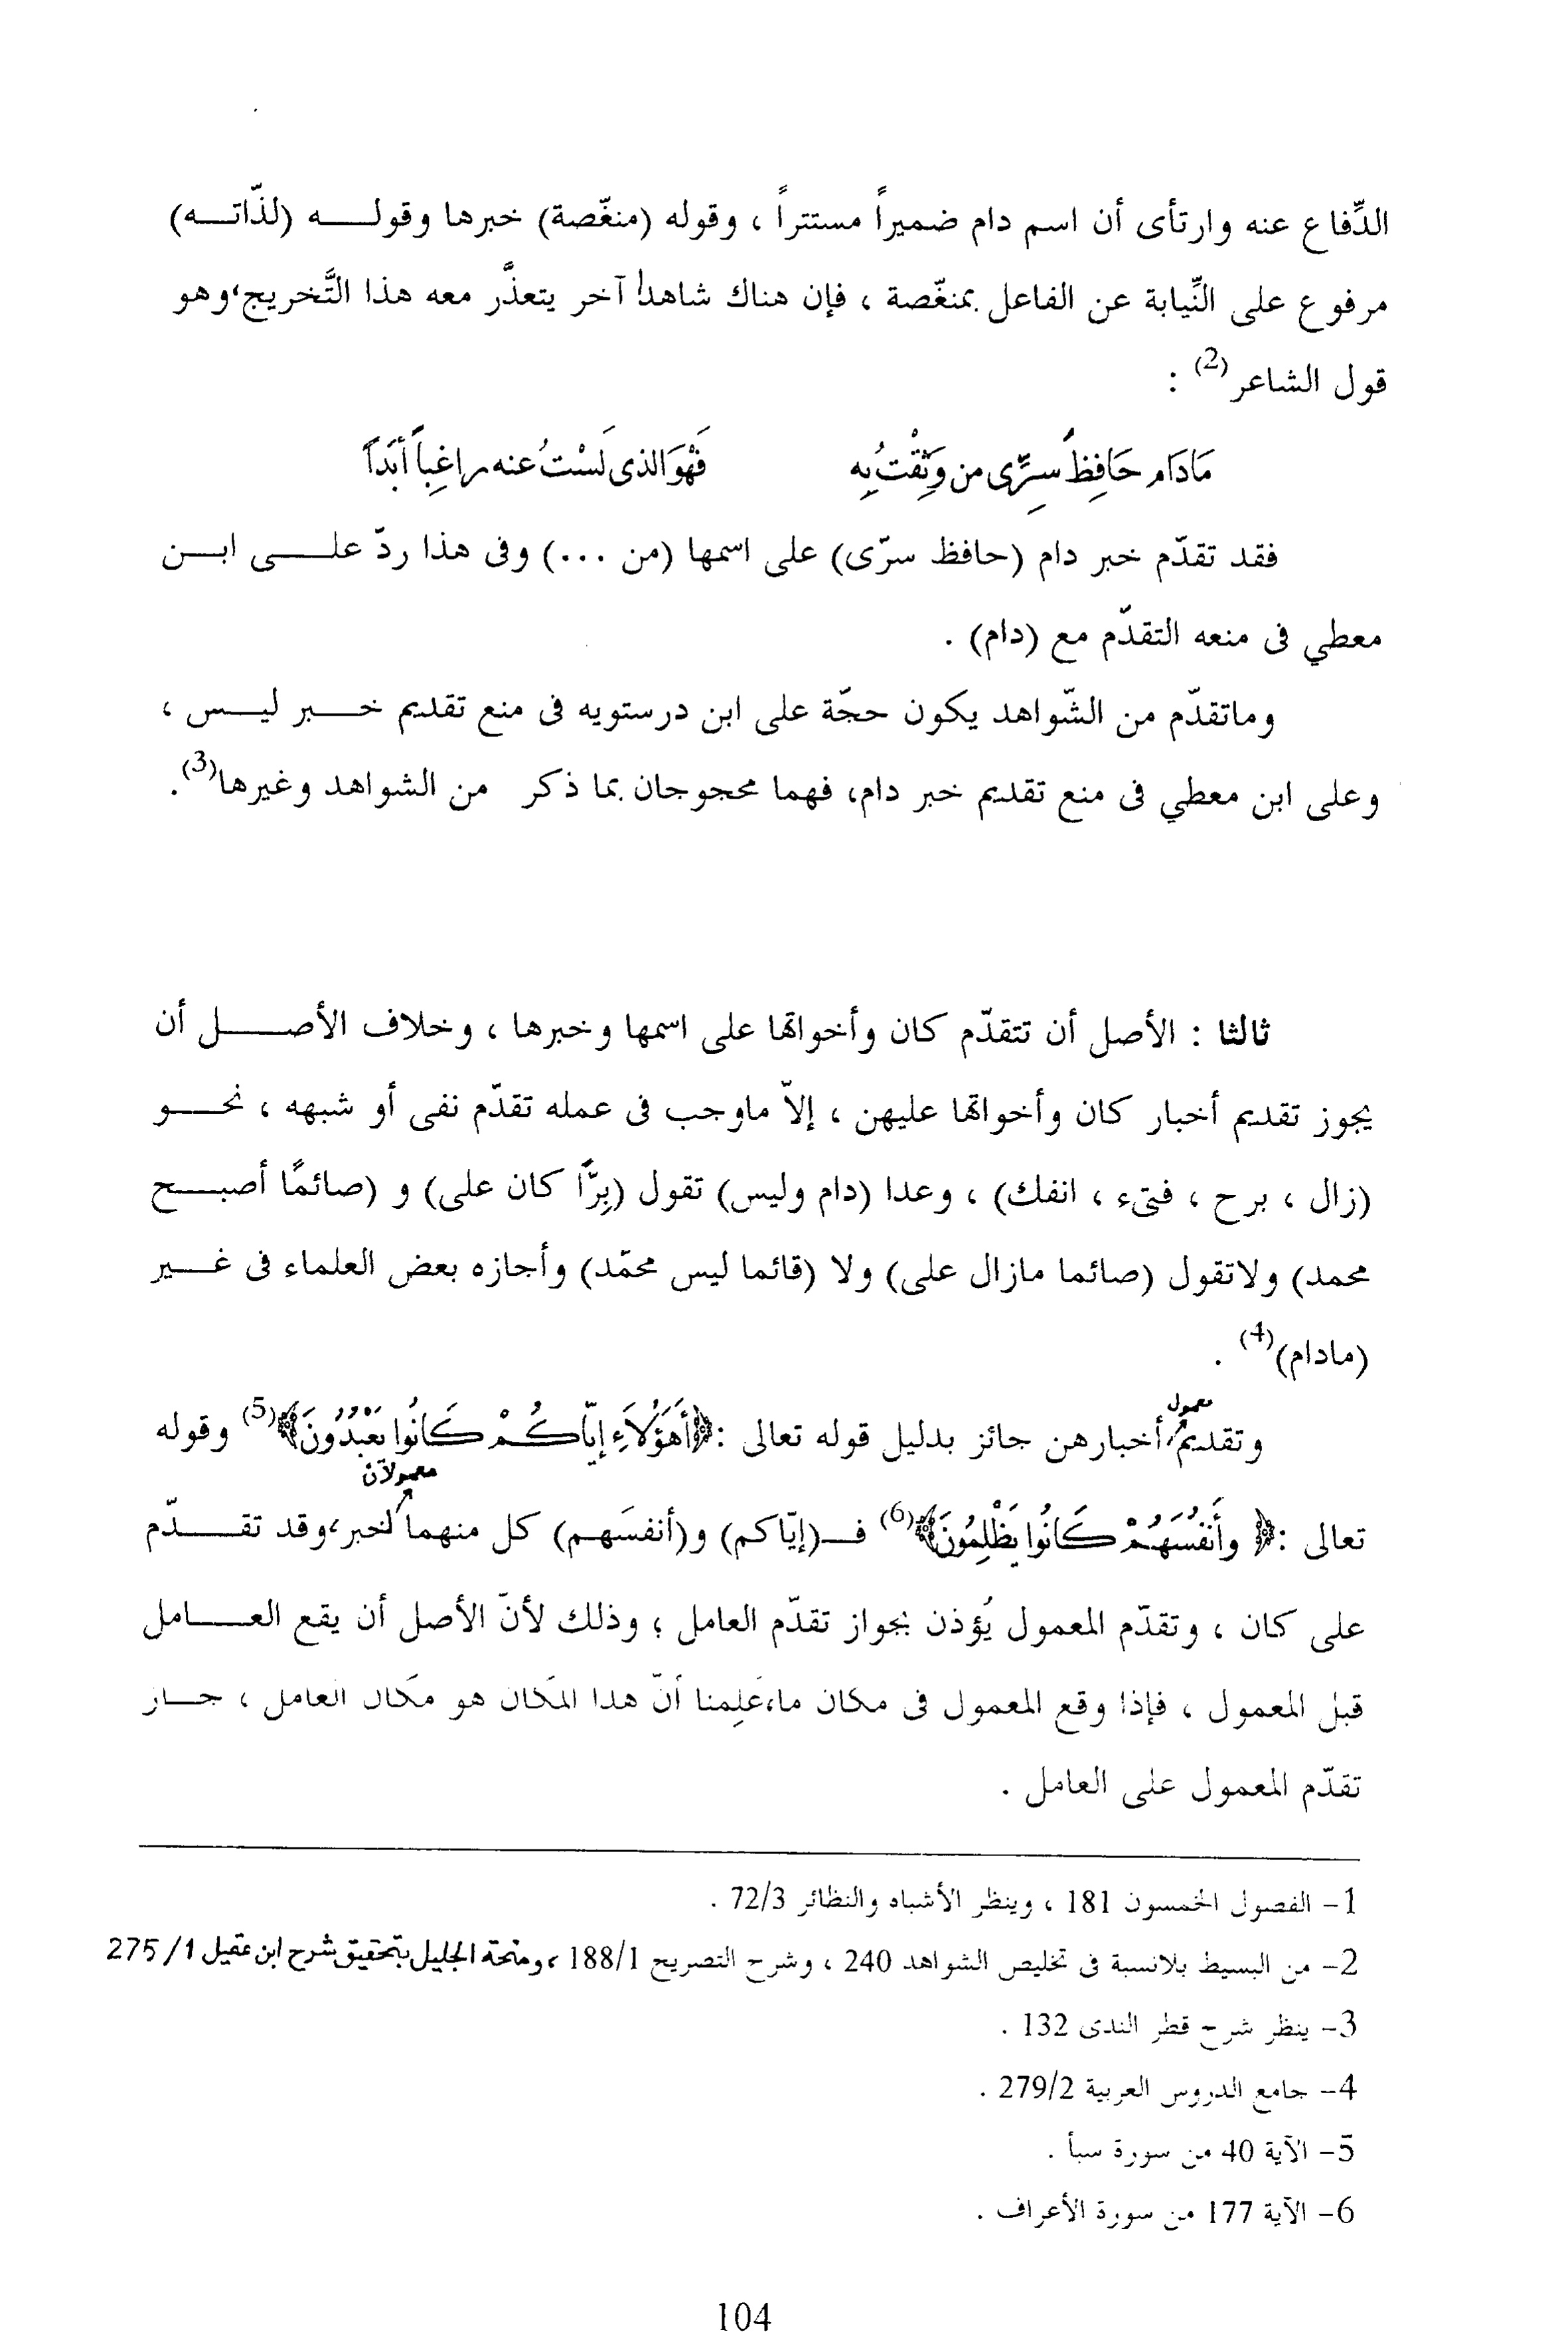 الدِّفاع عنه وارتأى أن اسم دام ضميراً مستتراً ، وقوله (منغّصة) خبرها وقولـــه (لذّاتــه)
مرفوع على النِّيابة عن الفاعل بمنغّصة ، فإن هناك شاهداً آخر يتعذَّر معه هذا التَّخريج،وهو
قول الشاعر(2) :
مَادَام حَافِظَ سِرِّى من وَثِقْتُ بِه فَهْوَ الذى لَسْتُ عنه راغِباً أَبَداً
فقد تقدّم خبر دام (حافظ سرّى) على اسمها (من ...) وفى هذا ردّ علـــى ابــن
معطي فى منعه التقدّم مع (دام) .
وماتقدّم من الشّواهد يكون حجّة على ابن درستويه فى منع تقديم خــبر ليــس ،
وعلى ابن معطي فى منع تقديم خبر دام، فهما محجوجان بما ذكر من الشواهد وغيرها(3).
ثالثا : الأصل أن تتقدّم كان وأخواتها على اسمها وخبرها ، وخلاف الأصـــل أن
يجوز تقديم أخبار كان وأخواتها عليهن ، إلاّ ماوجب فى عمله تقدّم نفى أو شبهه ، نحــو
(زال ، برح ، فتىء ، انفك) ، وعدا (دام وليس) تقول (بِرًّا كان على) و (صائمًا أصبــح
محمد) ولاتقول (صائما مازال على) ولا (قائما ليس محمّد) وأجازه بعض العلماء فى غــير
(مادام)(4) .
وتقديم معمول أخبارهن جائز بدليل قوله تعالى :﴿أَهَؤُلاَءِ إِيَّاكُمْ كَانُوا يَعْبُدُونَ﴾(5) وقوله
تعالى :﴿ وأَنفُسَهُمْ كَانُوا يَظْلِمُونَ﴾(6) فــ(إيّاكم) و(أنفسَهم) كل منهما معمولان لخبر،وقد تقـــدّم
على كان ، وتقدّم المعمول يُؤذن بجواز تقدّم العامل ؛ وذلك لأنّ الأصل أن يقع العـــامل
قبل المعمول ، فإذا وقع المعمول فى مكان ما،عَلِمنا أنّ هذا المَكان هو مَكان العامل ، جــاز
تقدّم المعمول على العامل .
1– الفصول الخمسون 181 ، وينظر الأشباه والنظائر 72/3 .
2– من البسيط بلانسبة فى تخليص الشواهد 240 ، وشرح التصريح 188/1 ،ومنحة الجليل بتحقيق شرح ابن عقيل 275/1
3– ينظر شرح قطر الندى 132 .
4– جامع الدروس العربية 279/2 .
5– الآية 40 من سورة سبأ .
6– الآية 177 من سورة الأعراف .
104